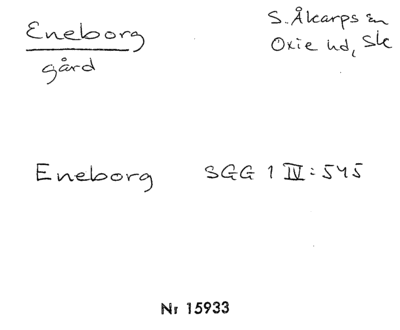 Eneborg
gård
S. Åkarps sn
Oxie hd, Sk
Eneborg SGG 1 IV: 545
Nr 15933